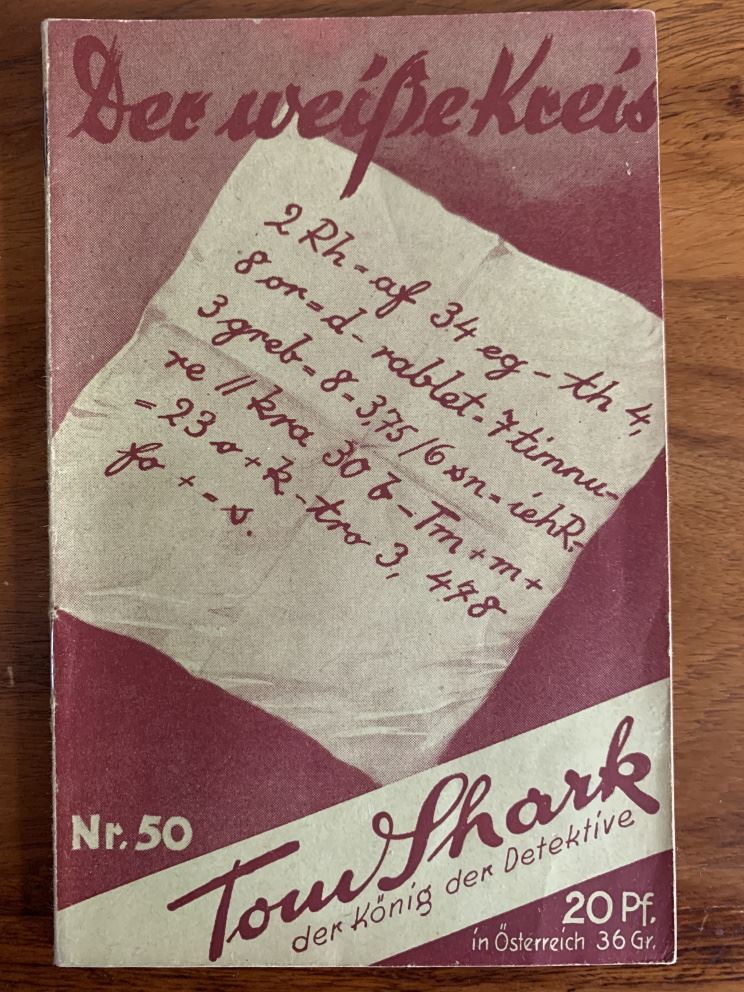 Der weiße Kreis
2 Rh = af 34 eg - th 4,
8 or = d - rablet - 7 timnu-
3 greb = 8 - 3,75 / 6 sn = iehR-
re // kra 30 b - Tm + m +
= 23 o + k - tro 3, 498
fo + - s.
Nr. 50
Tom Shark
der König der Detektive
20 Pf.
in Österreich 36 Gr.